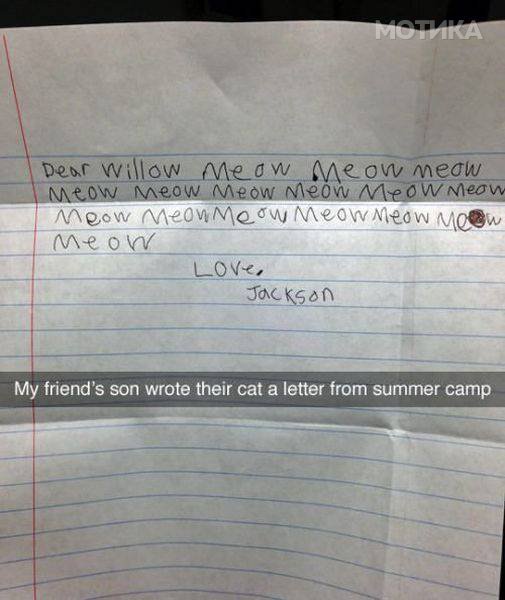 МОТИКА
Dear Willow Meow Meow meow
Meow Meow Meow Meow Meow Meow
Meow Meow Meow Meow Meow Meow
Meow
Love,
Jackson
My friend's son wrote their cat a letter from summer camp